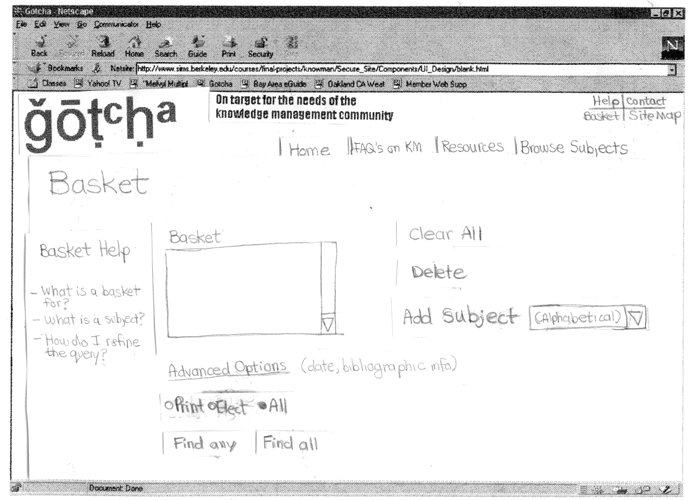 Gotcha - Netscape
File Edit View Go Communicator Help
Back Reload Home Search Guide Print Security
Bookmarks Netsite: http://www.sims.berkeley.edu/courses/final-projects/knowman/Secure_Site/Components/UI_Design/blank.html
Classes Yahoo! TV "Melvyl Multipl Gotcha Bay Area eGuide Oakland CA West Member Web Supp
ğōṭᶜḥa
On target for the needs of the
knowledge management community
Help | contact
Basket | Site Map
Home | FAQ's on KM | Resources | Browse Subjects
Basket
Basket Help
- What is a basket for?
- What is a subject?
- How do I refine the query?
Basket
Clear All
Delete
Add Subject (Alphabetical)
Advanced Options (date, bibliographic info)
Print Elect All
Find any | Find all
Document: Done